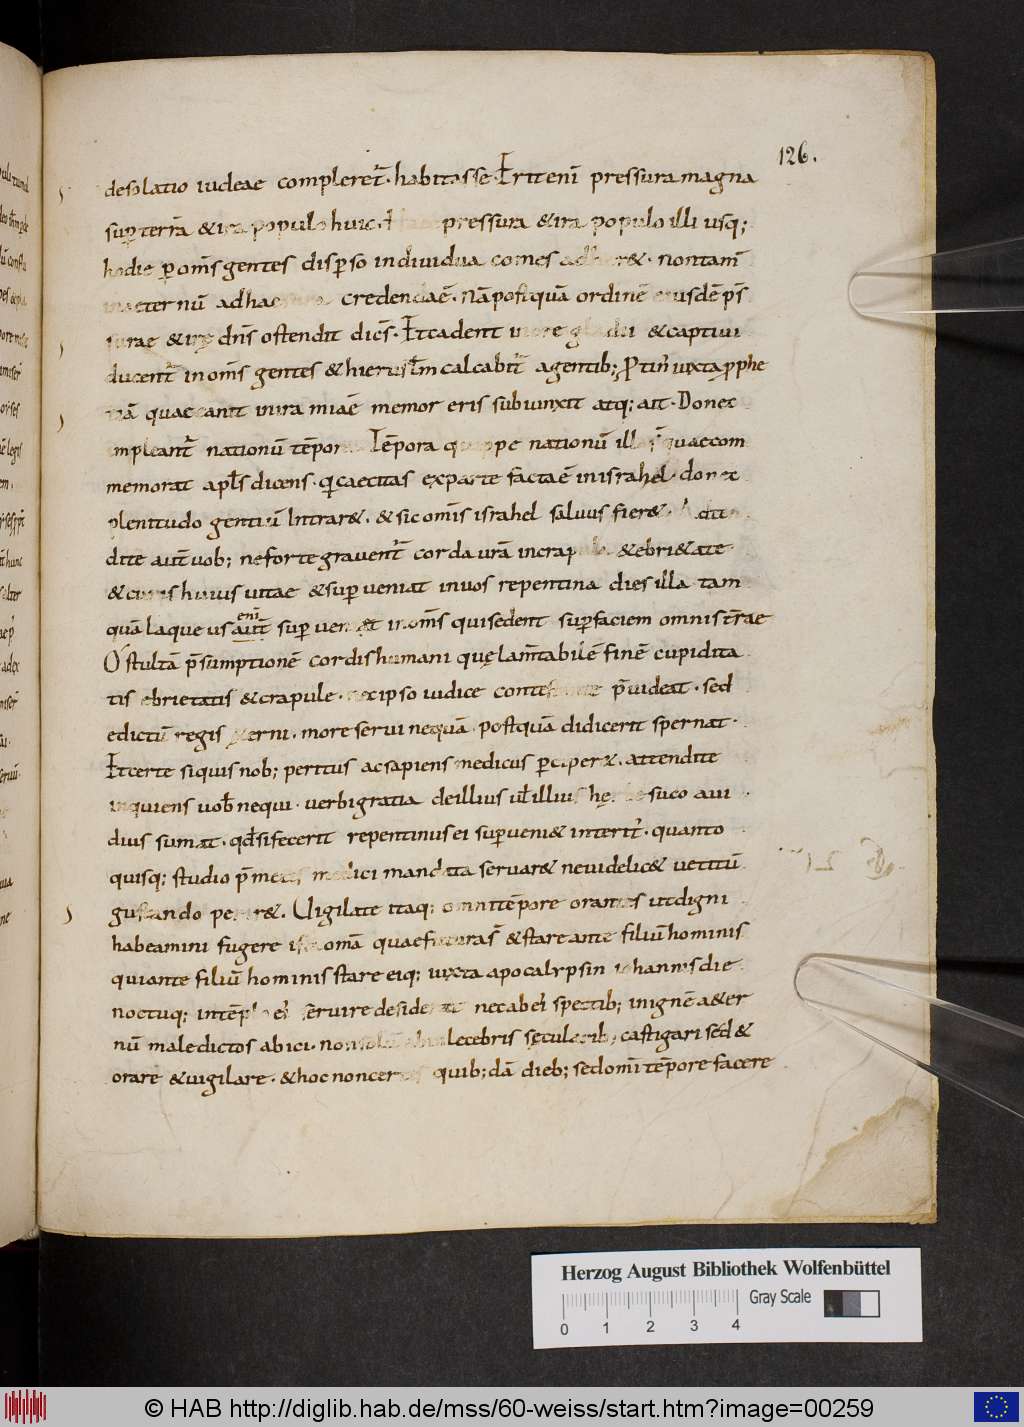 126.
desolatio iudeae compleret᷒· habitasse· Erit enī pressura magna
sup terrā & ira populo huic· pressura & ira populo illi usq;
hodie p om̄s gentes disp̱so individua comes · non tam̄
in aeternū credenda ē· Nā postquā ordinē eiusdē p̄s
surae & irę dn̄s ostendit dic̄s· Et cadent in ore gladii & captivi
ducent᷒ in om̄s gentes & hierusl̄m calcabit᷒ a gentib; Protin᷒ iuxta pphe
quae canit in ira miae memor eris subiunxit atq; ait· Donec
impleant᷒ nationū tēpora Tēpora quippe nationū quae com
memorat apl̄s dicens· q caecitas ex parte facta ē in israhel donec
plenitudo gentiū Intrar&· & sic omīs israhel salvus fier&· Adten
dite aut̄ uob; ne forte gravent᷒ corda ur̄a in crapula & ebri&ate
& curis huius uitae & sup veniat in vos repentina dies illa tam
enī
quā laqueus aut̄ sup in om̄s qui sedent sup faciem omnis t̄rae
O stultā p̄sumptionē cordis humani quę lam̄tabilē finē cupidita
tis ebrietatis & crapule· ex ipso iudice p̄videat· sed
edictū regis more servi nequā· postquā didicerit spernat·
Et certe si quis nob; peritus ac sapiens medicus p̄ciper&· attendite
inquiens uob nequi· verbi gratia de illius ul̄ illius suco avi
dius sumat· qđ si fecerit repentinus ei sup veni& interit᷒· quanto
quisq; studio p̄ medici mandata servar& ne videlic& vetitū
gustando perir&. Vigilate itaq; omni tēpore orantes ut digni
habeamini fugere ista om̄a quae futura s̄ & stare ante filiū hominis
qui ante filiū hominis stare eiq; iuxta apocalypsin iohannis die
noctuq; in tēplo ei᷒ servire desiderat nec ab ei᷒ spectib; in ignē a&er
nū maledictos abici· non solū illecebris sęcularib; castigari sed &
orare & vigilare· & hoc non certis quib;dā dieb; sed omī tēpore facere
Herzog August Bibliothek Wolfenbüttel
Gray Scale
0 1 2 3 4
© HAB http://diglib.hab.de/mss/60-weiss/start.htm?image=00259